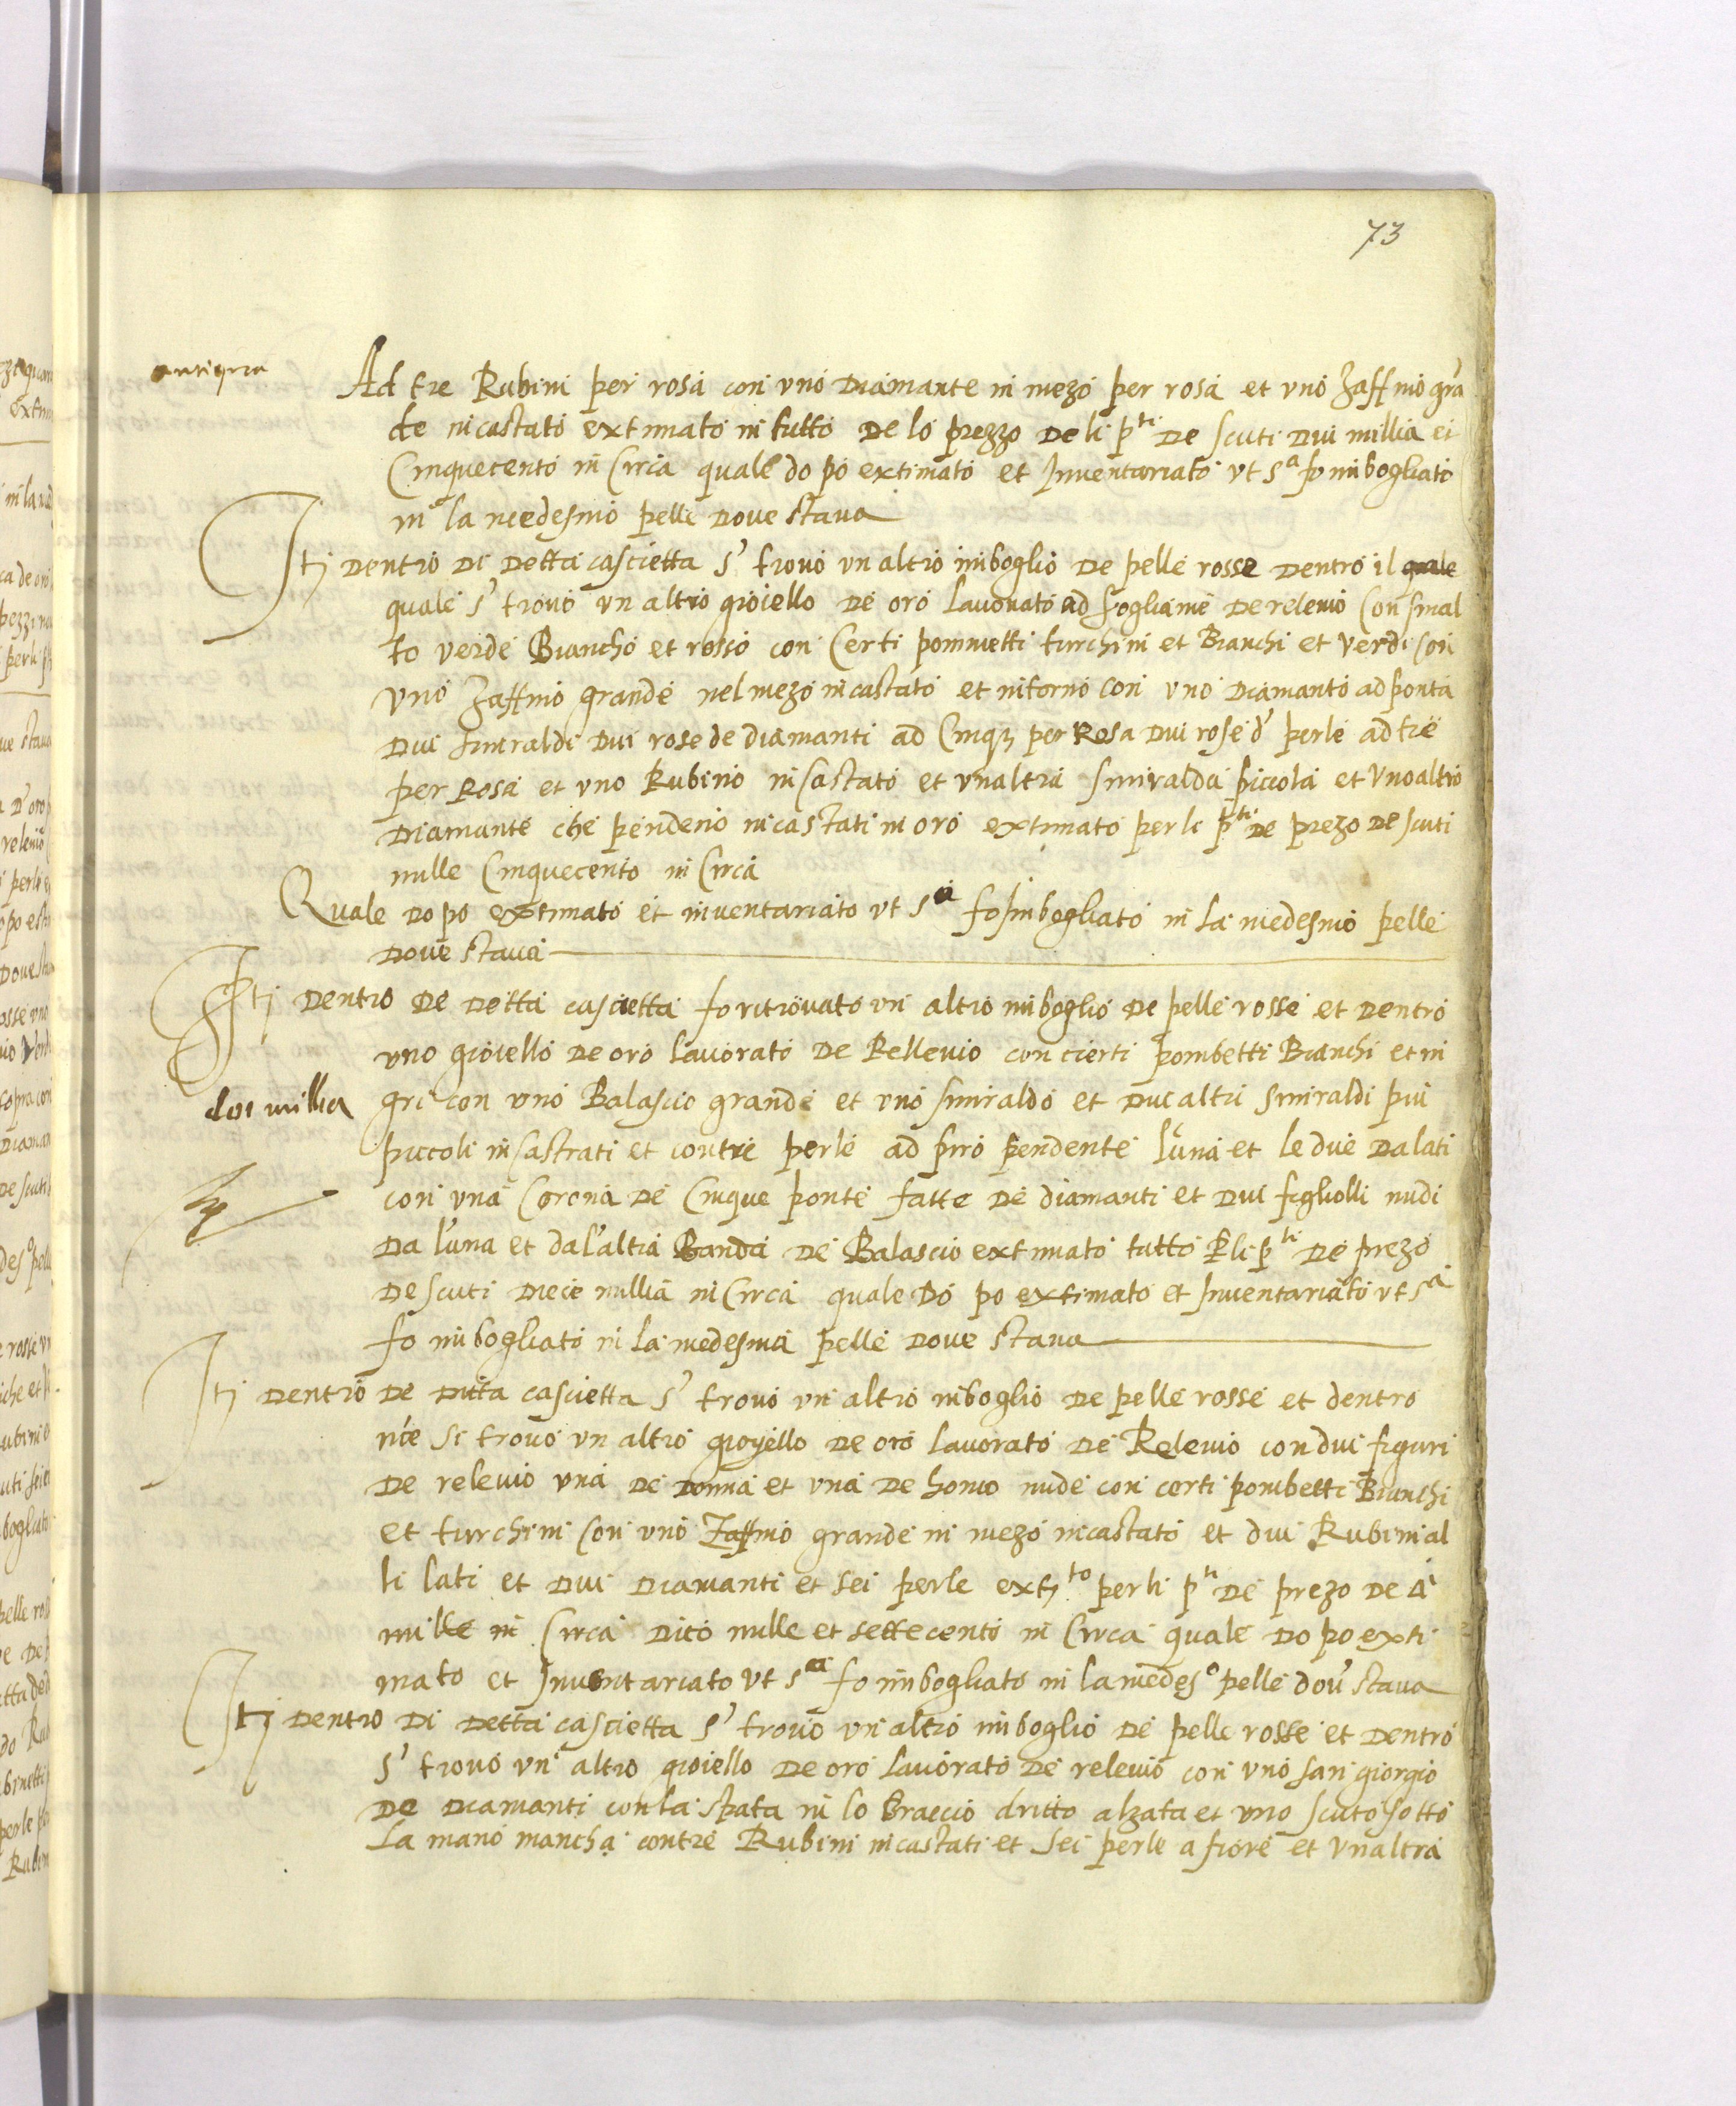 73
antiqua
Ad tre Rubini per rosa con uno Diamante in mezo per rosa et uno Zaffino gra
de incastato extimato in tutto De lo prezzo Deli p.ti De scuti Dui millia et
Cinquecento in Circa quale do po extimato et Inventariato ut s.a fo imbogliato
in la medesmo pelle Dove stava
Itj Dentro Di Detta cascietta s' trovo un altro imboglio De pelle rosse Dentro il quale
quale s' trovo un altro gioiello De oro Lavorato ad fogliame De relevio Con smal
to verde Biancho et rosso con Certi pommetti turchini et Bianchi et verdi con
uno Zaffino grande nel mezo incastato et intorno con uno Diamanto ad ponta
Dui smiraldi Dui rose de diamanti ad Cinq3 per Rosa Dui rose d' perle ad tre
per Rosa et uno Rubino incastato et unaltra smiralda piccola et Unoaltro
Diamante che pendeno incastati in oro extimato per li p.ti De prezo De scuti
mille Cinquecento in Circa
Quale Do po extimato et inventariato ut s.a fo Imbogliato in la medesmo pelle
Dove stava
Itj Dentro De Detta cascietta fo ritrovato un altro imboglio De pelle rosse et Dentro
uno gioiello De oro lavorato De Rellevio con cierti pombetti Bianchi et ni
doi millia
gri con uno Balascio grande et uno smiraldo et Due altri Smiraldi piu
piccoli incastrati et con tre perle ad piro pendente l'una et le due Da lati
con una Corona De Cinque ponte fatte De diamanti et Dui figliolli nudi
Da l'una et dal'altra Banda De Balascio extimato tutto P li p.ti De prezo
De scuti Diece millia in Circa quale Do po extimato et Inventariato ut s.a
fo imbogliato in la medesma pelle Dove stava
Itj Dentro De Ditta cascietta s' trovo un altro imboglio De pelle rosse et dentro
nce si trovo un altro gioyello De oro lavorato De Relevio con dui figuri
De relevio una De Donna et una De homo nude con certi pombetti Bianchi
et turchini con uno Zaffino grande in mezo incastato et dui Rubini al
li lati et Dui Diamanti et sei perle ext.to per li p.ti De prezo De
mille in Circa Dico mille et settecento in Circa quale Do po exti
mato et Inventariato ut s.a fo imbogliato in la medes.o pelle dov' stava
Itj Dentro Di Detta cascietta s' trovo un altro imboglio De pelle rosse et Dentro
s' trovo un altro gioiello De oro Lavorato De relevio con uno san giorgio
De Diamanti con la spata in lo braccio dritto alzata et uno scuto sotto
La mano mancha con tre Rubini incastati et sei perle a fiore et Unaltra